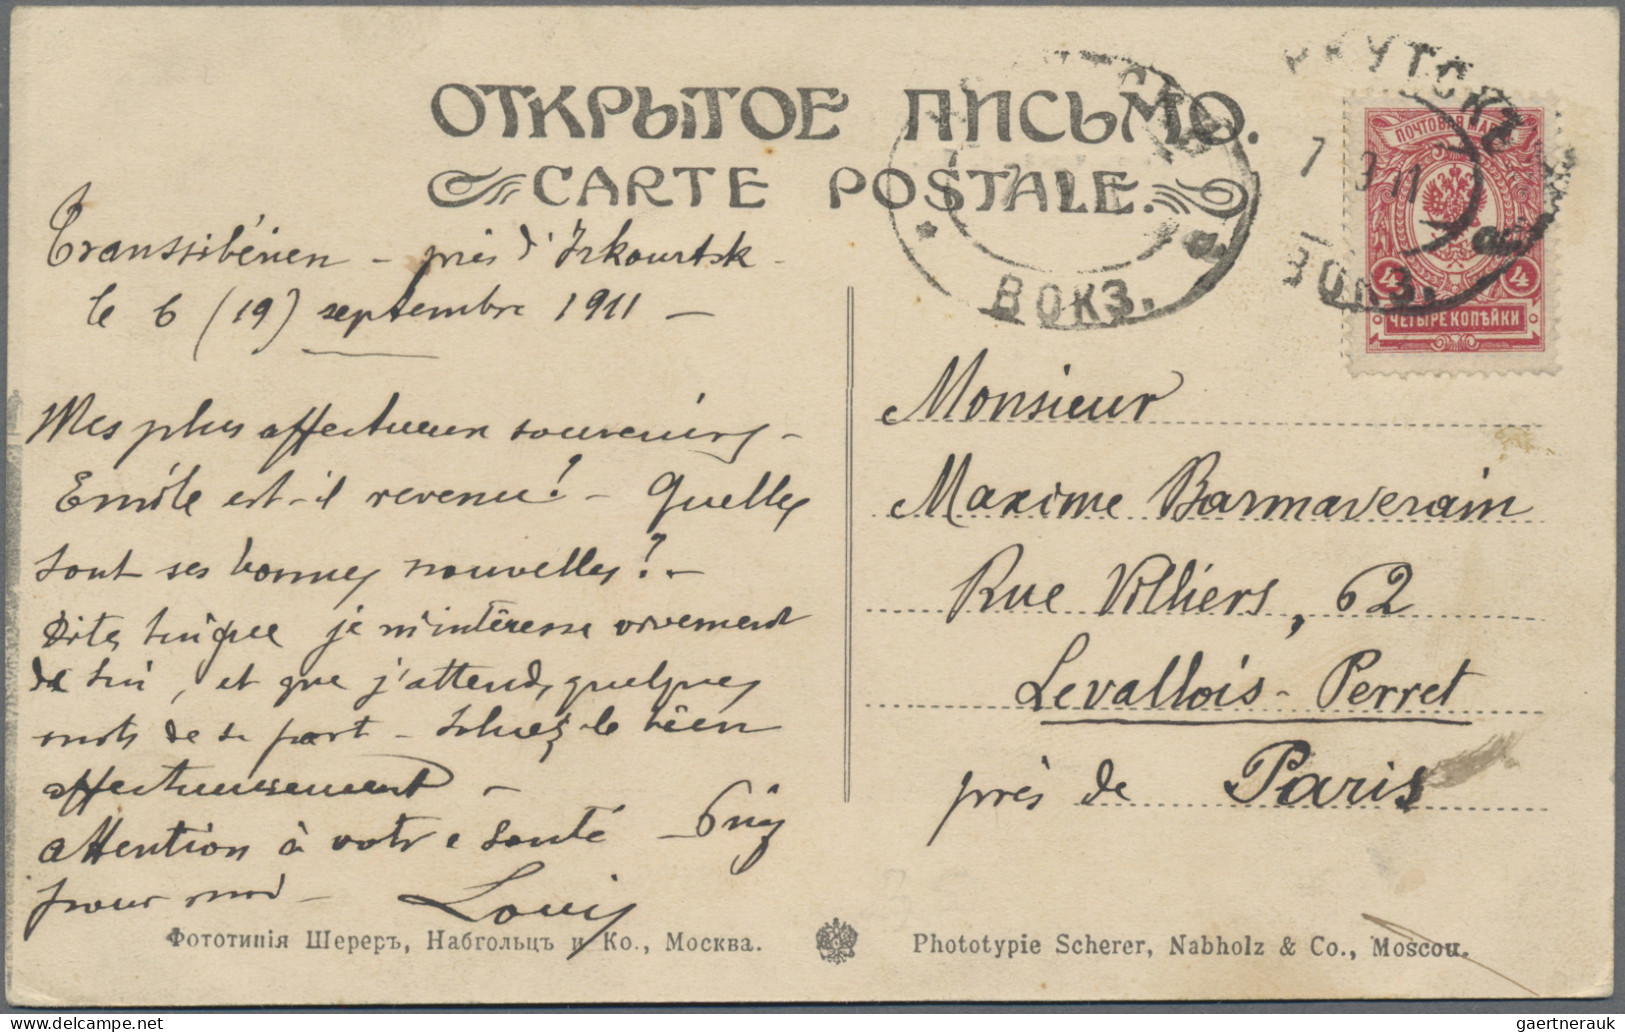 ОТКРЫТОЕ ПИСЬМО.
CARTE POSTALE.
РКУТСКЪ
7 9 11
ВОКЗ.
ВОКЗ.
ПОЧТОВАЯ МАРКА
4 4
ЧЕТЫРЕ КОПѢЙКИ
Transsibérien – près d'Irkourtsk –
le 6 (19) septembre 1911 –
Mes plus affectueux souvenirs –
Emile est-il revenu? – Quelles
sont ses bonnes nouvelles? –
Dites lui que je m'intéresse vivement
de lui, et que j'attends quelques
mots de sa part – Saluez-le bien
affectueusement –
attention à votre santé –
pour moi – Louis
Monsieur
Maxime Barmaverain
Rue Villiers, 62
Levallois-Perret
près de Paris
Фототипія Шереръ, Набгольцъ и Ко., Москва.
Phototypie Scherer, Nabholz & Co., Moscou.
gaertnerauk